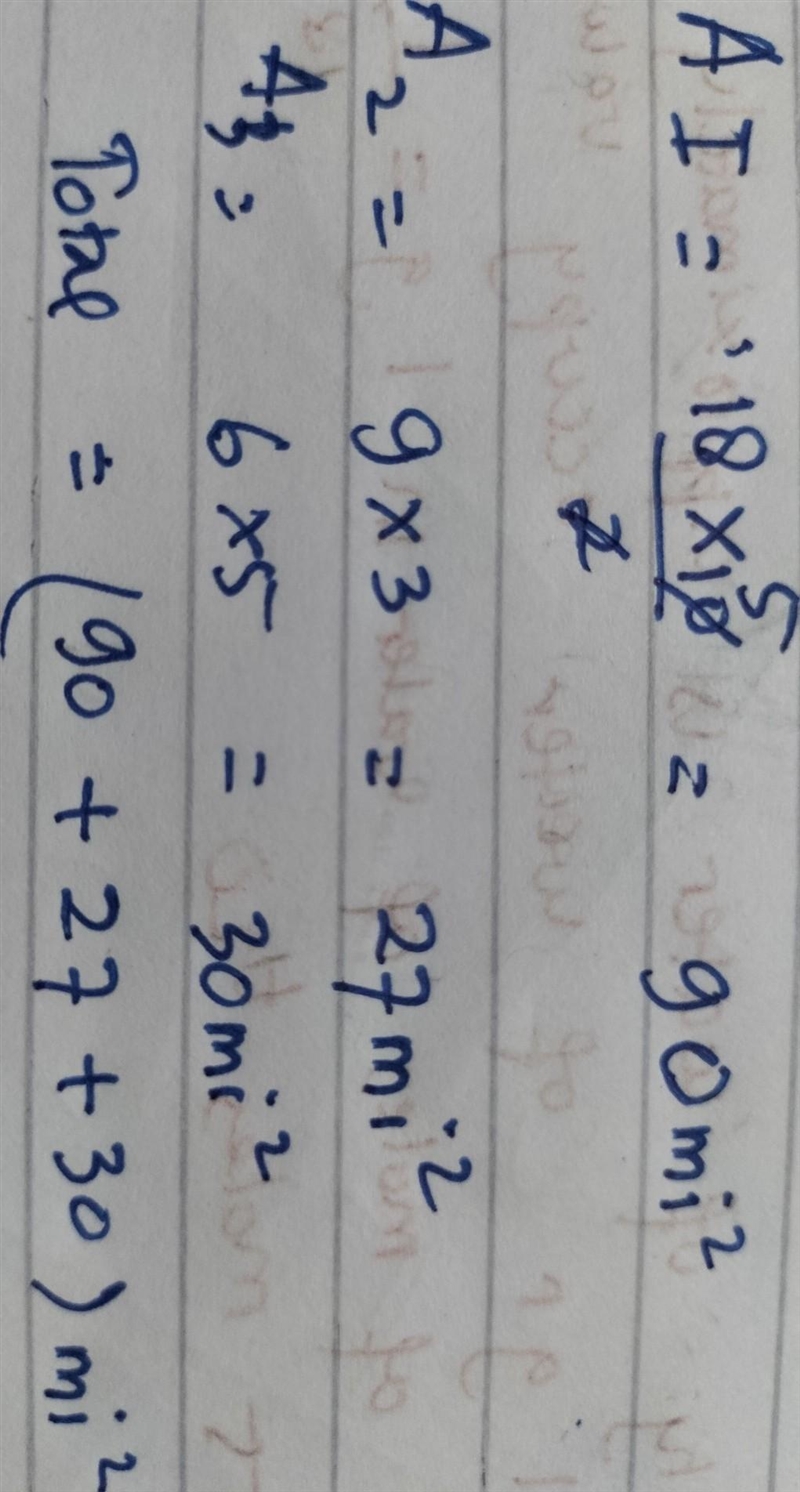 A I = 18 x 10 5 = 90 mi²
2
A 2 = 9 x 3 = 27 mi²
A3 = 6 x 5 = 30 mi²
Total = (90 + 27 + 30) mi²